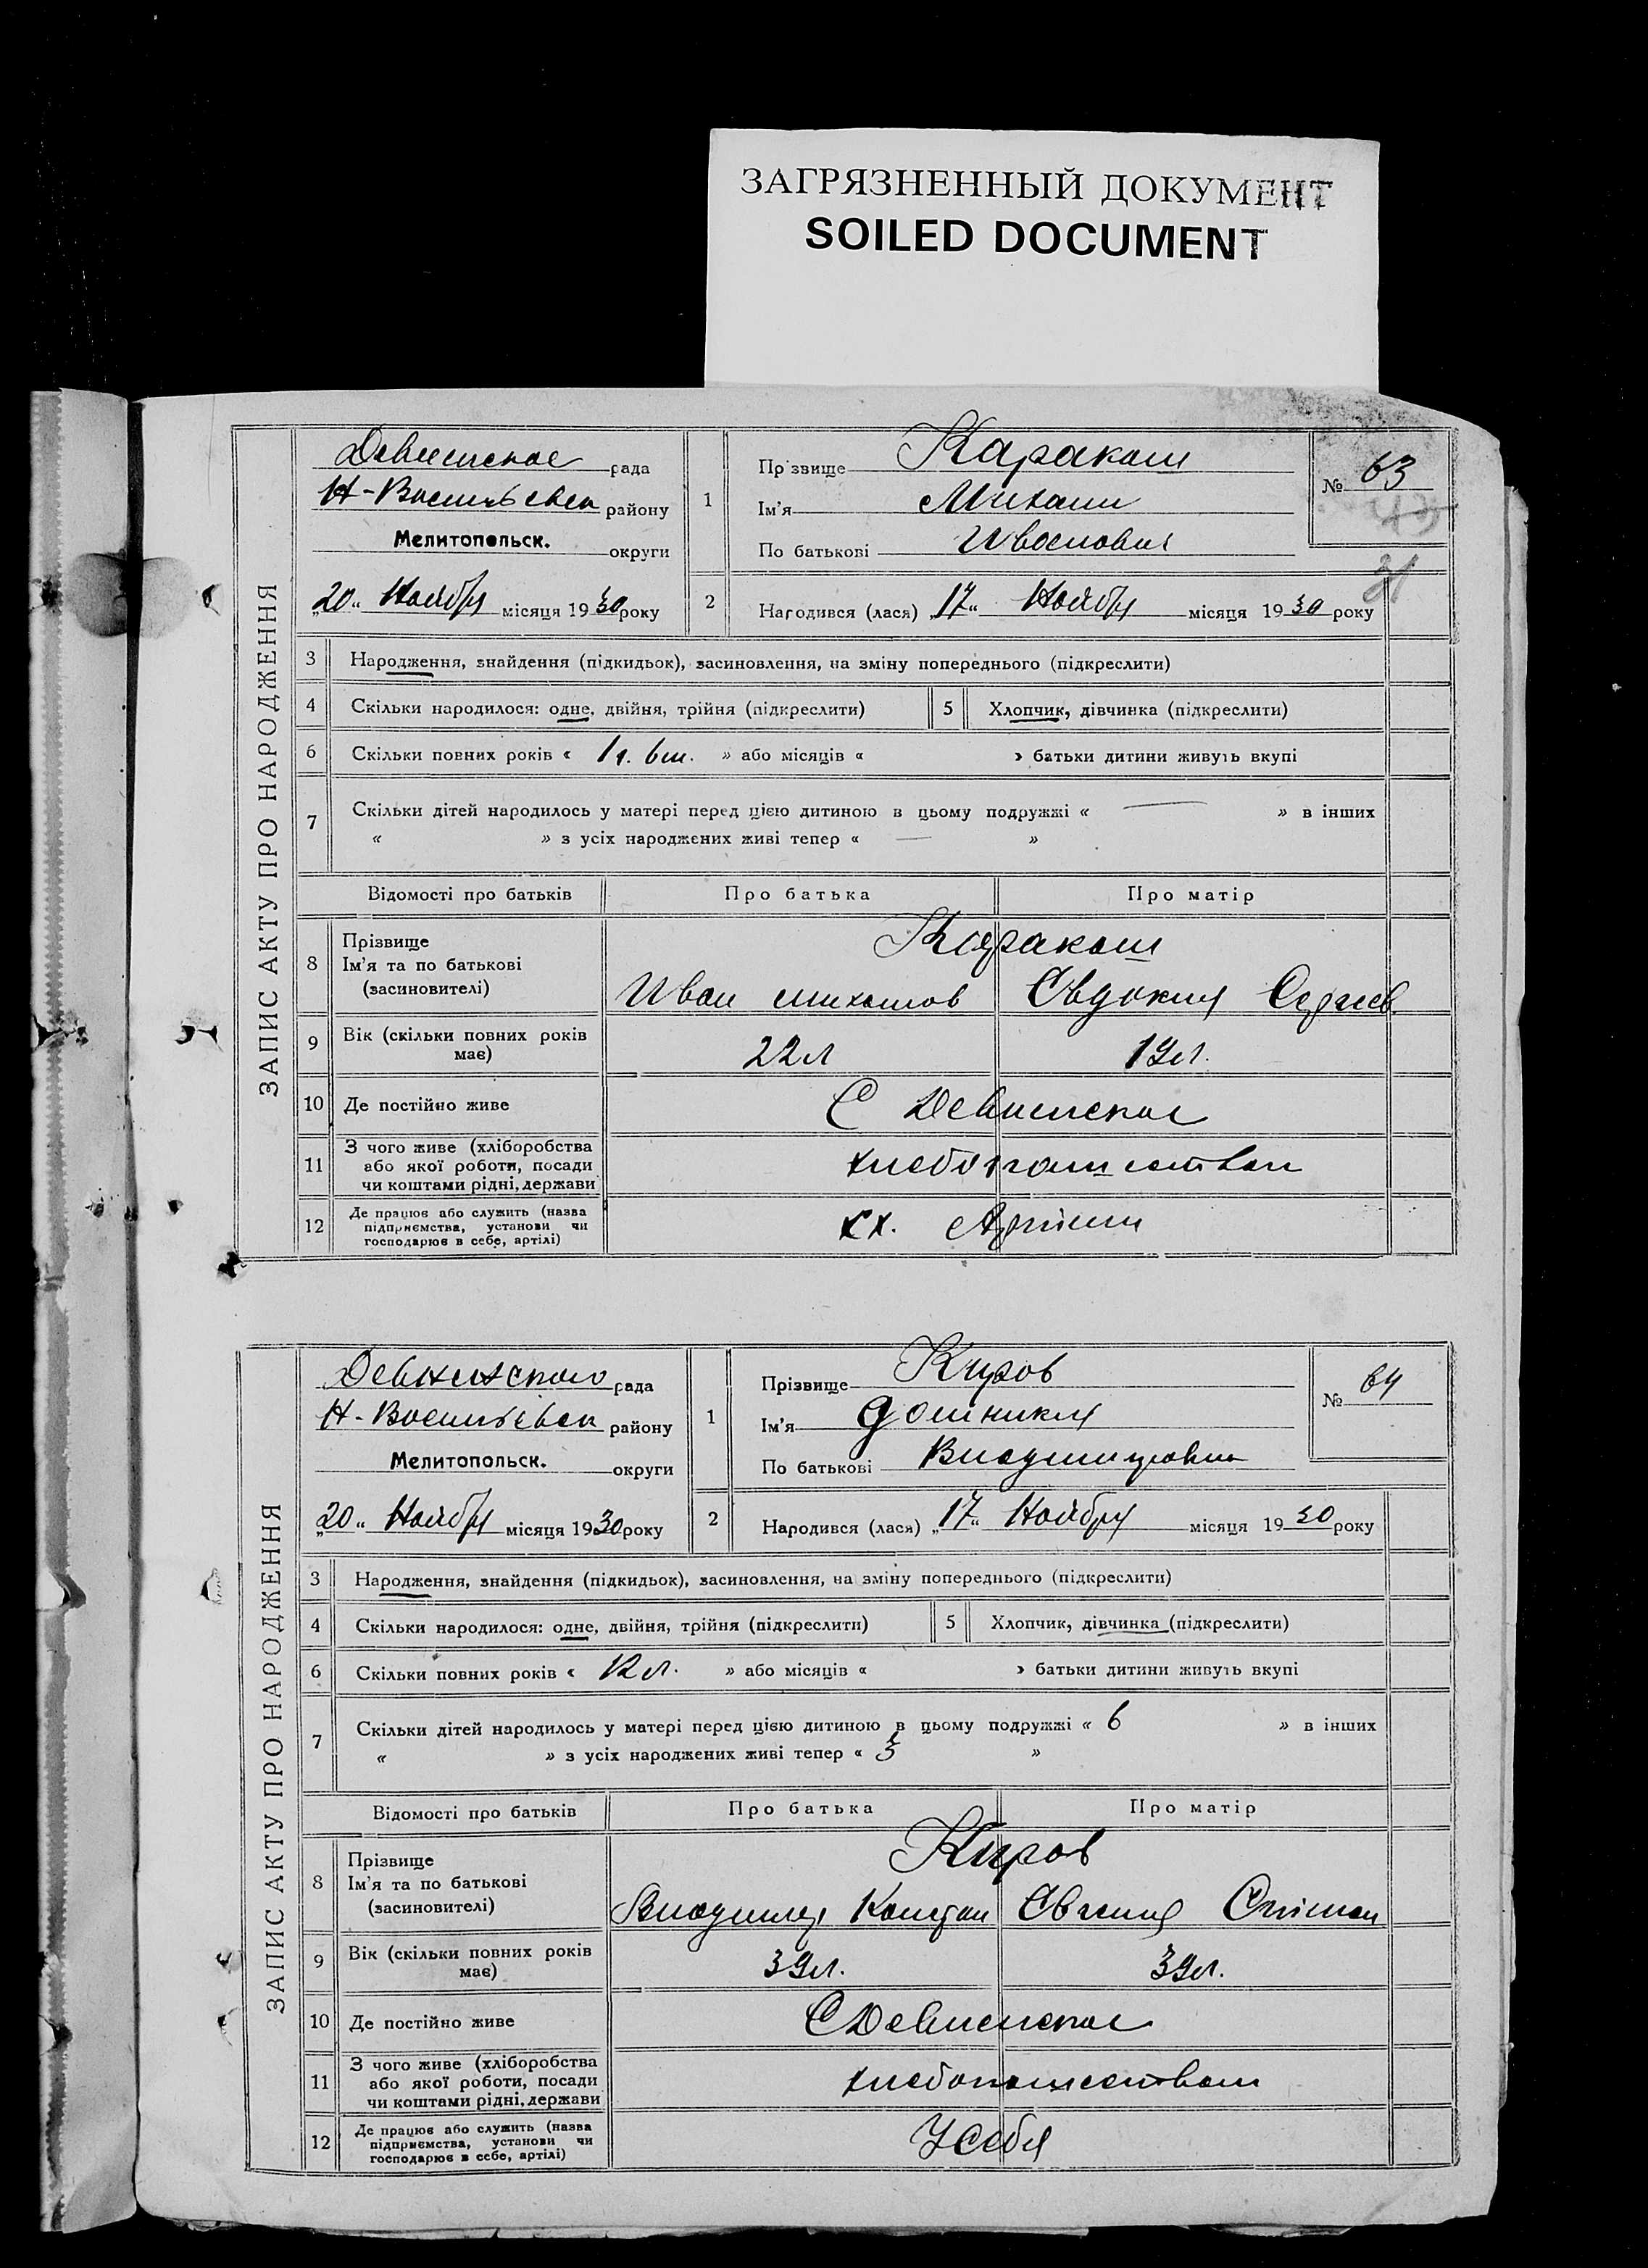 ЗАГРЯЗНЕННЫЙ ДОКУМЕНТ
SOILED DOCUMENT
ЗАПИС АКТУ ПРО НАРОДЖЕННЯ
Девнинское рада
Н-Васильевск району
Мелитопольск. округи
„20“ Ноября місяця 1930 року
1
Прізвище Каракаш
Ім'я Михаил
По батькові Иванович
№ 63
31
2
Народився (лася) „17“ Ноября місяця 1930 року
3 Народження, знайдення (підкидьок), засиновлення, на зміну попереднього (підкреслити)
4 Скільки народилося: одне, двійня, трійня (підкреслити)
5 Хлопчик, дівчинка (підкреслити)
6 Скільки повних років « 1 г. 6 м. » або місяців « » батьки дитини живуть вкупі
7 Скільки дітей народилось у матері перед цією дитиною в цьому подружжі « — » в інших
« » з усіх народжених живі тепер « — »
Відомості про батьків Про батька Про матір
8 Прізвище
Ім'я та по батькові
(засновителі)
Каракаш
Иван Михайлов Евдокия Сергеев
9 Вік (скільки повних років
має)
22 л 19 л.
10 Де постійно живе
С Девнинское
11 З чого живе (хліборобства
або якої роботи, посади
чи коштами рідні, держави
хлебопашеством
12 Де працює або служить (назва
підприємства, установи чи
господарює в себе, артілі)
сх. Артели
ЗАПИС АКТУ ПРО НАРОДЖЕННЯ
Девнинского рада
Н-Васильевск району
Мелитопольск. округи
„20“ Ноября місяця 1930 року
1
Прізвище Киров
Ім'я Домникия
По батькові Владимировна
№ 64
2
Народився (лася) „17“ Ноября місяця 1930 року
3 Народження, знайдення (підкидьок), засиновлення, на зміну попереднього (підкреслити)
4 Скільки народилося: одне, двійня, трійня (підкреслити)
5 Хлопчик, дівчинка (підкреслити)
6 Скільки повних років « 12 л. » або місяців « » батьки дитини живуть вкупі
7 Скільки дітей народилось у матері перед цією дитиною в цьому подружжі « 6 » в інших
« » з усіх народжених живі тепер « 3 »
Відомості про батьків Про батька Про матір
8 Прізвище
Ім'я та по батькові
(засиновителі)
Киров
Владимир Константин Евгения
9 Вік (скільки повних років
має)
39 л. 39 л.
10 Де постійно живе
С Девнинское
11 З чого живе (хліборобства
або якої роботи, посади
чи коштами рідні, держави
хлебопашеством
12 Де працює або служить (назва
підприємства, установи чи
господарює в себе, артілі)
У себя